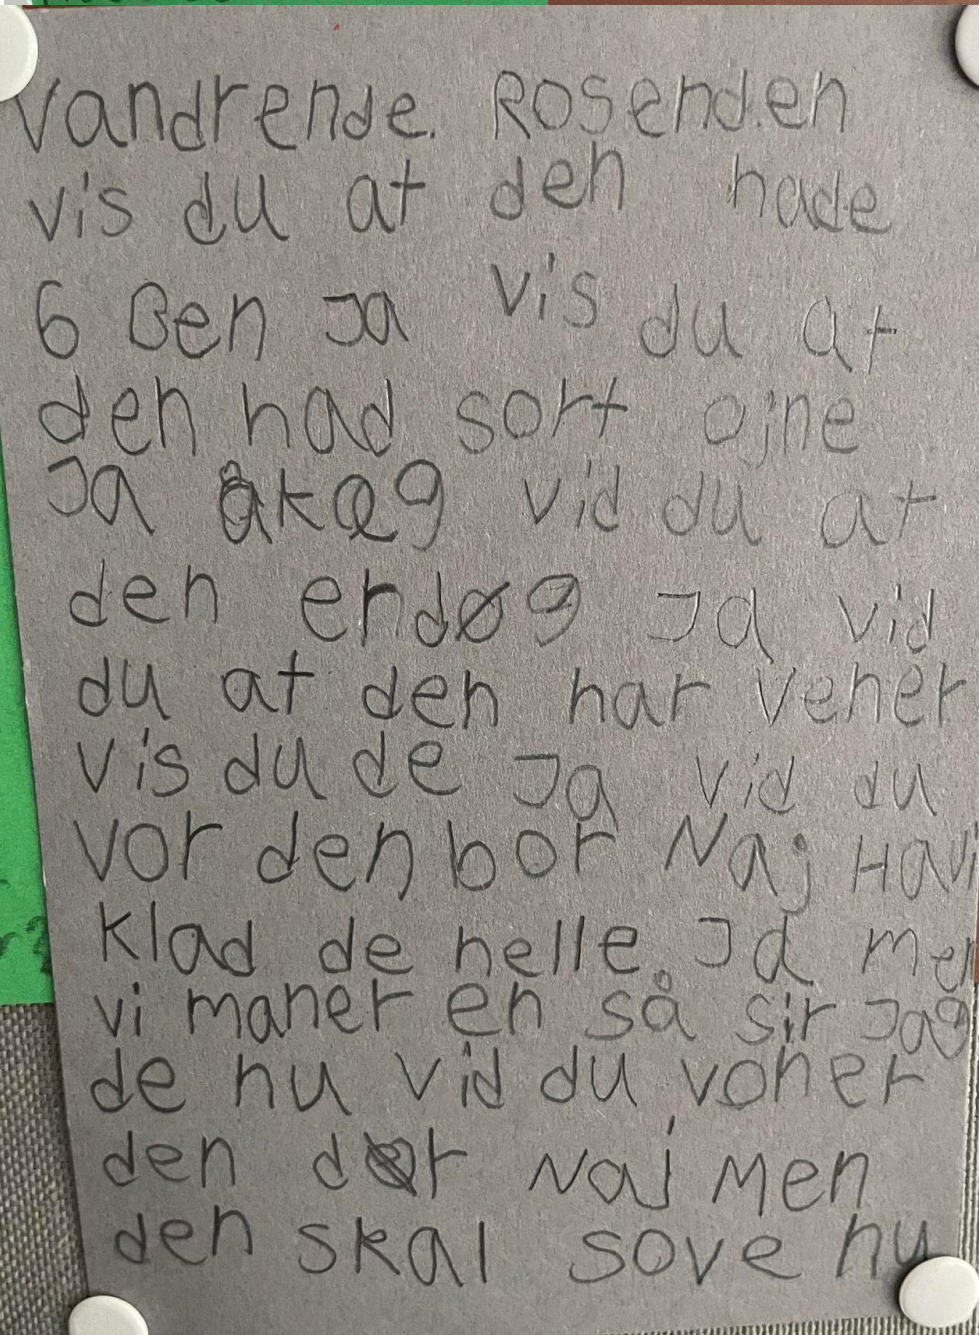 vandrende. Rosenden
vis du at den hade
6 Ben Ja vis du at
den had sort ojne
Ja åkæg vid du at
den erdøg Ja vid
du at den har vener
vis du de Ja vid du
vor den bor Naj HAV
klad de helle. Ja
vi maner en så sir Jag
de nu vid du voner
den dør Naj Men
den skal sove nu